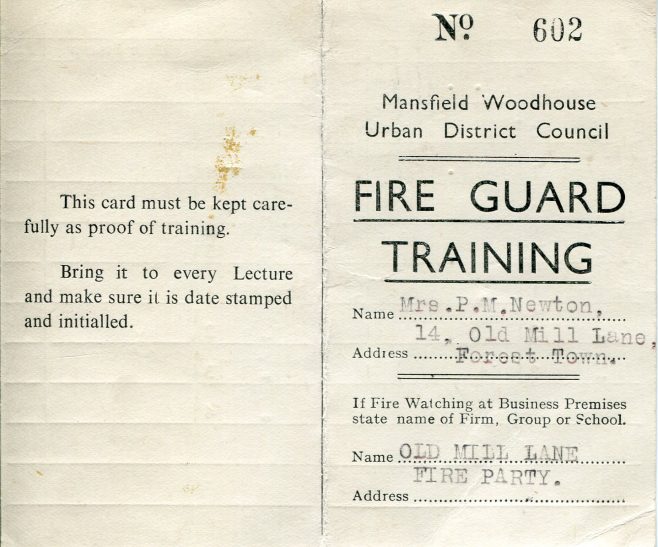 This card must be kept care-
fully as proof of training.
Bring it to every Lecture
and make sure it is date stamped
and initialled.
No. 602
Mansfield Woodhouse
Urban District Council
FIRE GUARD
TRAINING
Name Mrs.P.M.Newton,
14, Old Mill Lane,
Address Forest Town.
If Fire Watching at Business Premises
state name of Firm, Group or School.
Name OLD MILL LANE
FIRE PARTY.
Address